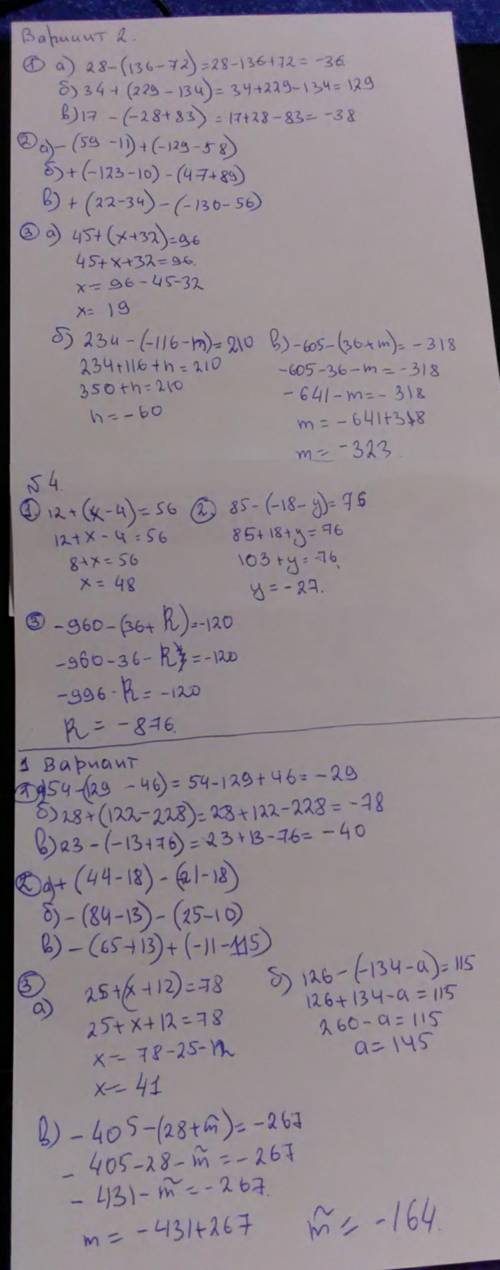 Вариант 2.
① а) 28-(136-72)=28-136+72=-36
б) 34+(229-134)=34+229-134=129
в) 17-(-28+83)=17+28-83=-38
② а) -(59-11)+(-129-58)
б) +(-123-10)-(47+89)
в) +(22-34)-(-130-56)
③ а) 45+(x+32)=96
45+x+32=96
x=96-45-32
x=19
б) 234-(-116-n)=210
234+116+n=210
350+n=210
n=-60
в) -605-(36+m)=-318
-605-36-m=-318
-641-m=-318
m=-641+318
m=-323
№4.
① 12+(x-4)=56
12+x-4=56
8+x=56
x=48
② 85-(-18-y)=76
85+18+y=76
103+y=76
y=-27.
③ -960-(36+R)=-120
-960-36-R=-120
-996-R=-120
R=-876.
1 Вариант
① а) 54-(129-46)=54-129+46=-29
б) 28+(122-228)=28+122-228=-78
в) 23-(-13+76)=23+13-76=-40
② а) +(44-18)-(21-18)
б) -(84-13)-(25-10)
в) -(65+13)+(-11-115)
③
а) 25+(x+12)=78
25+x+12=78
x=78-25-12
x=41
б) 126-(-134-a)=115
126+134-a=115
260-a=115
a=145
в) -405-(28+m̃)=-267
-405-28-m̃=-267
-431-m̃=-267.
m=-431+267
m̃=-164.